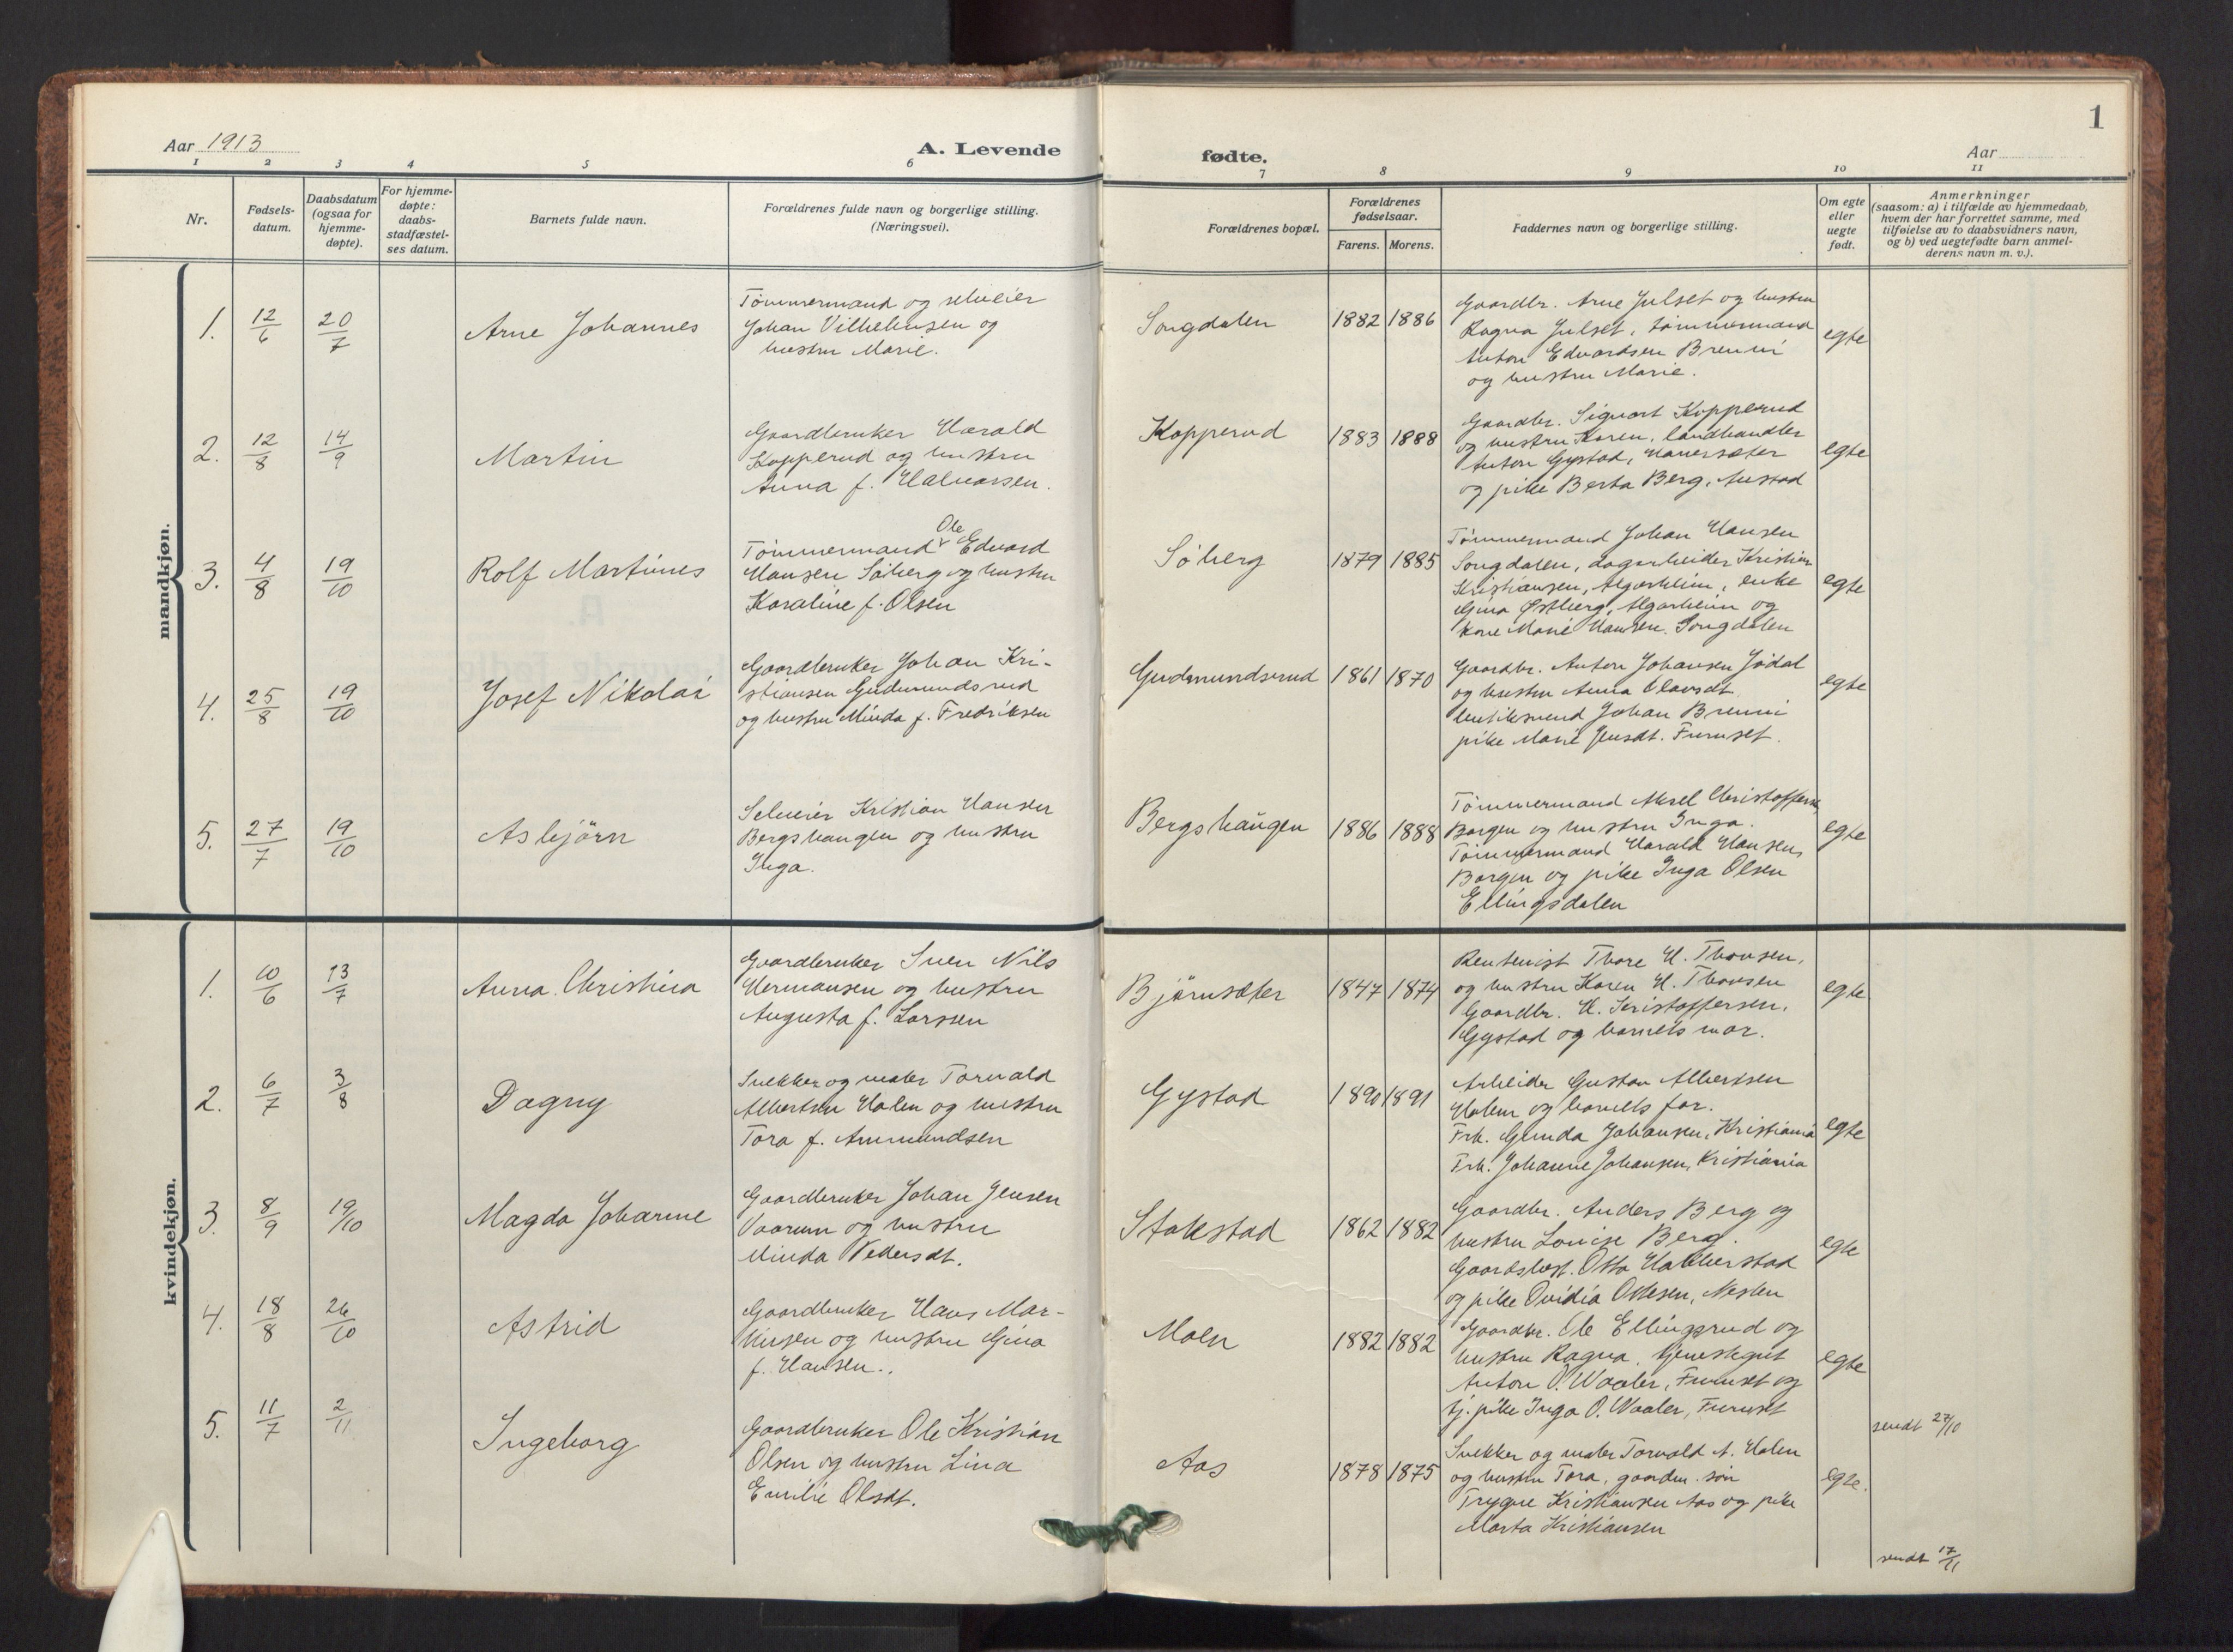 1
Aar 1913
A. Levende
fødte.
Aar
1 2 3 4 5 6
7 8 9 10 11
Nr.
Fødsels-
datum.
Daabsdatum
(ogsaa for
hjemme-
døpte).
For hjemme-
døpte:
daabs-
stadfæstel-
ses datum.
Barnets fulde navn.
Forældrenes fulde navn og borgerlige stilling.
(Næringsvei).
Forældrenes bopæl.
Forældrenes
fødselsaar.
Farens. Morens.
Faddernes navn og borgerlige stilling.
Om egte
eller
uegte
født.
Anmerkninger
(saasom: a) i tilfælde av hjemmedaab,
hvem der har forrettet samme, med
tilføielse av to daabsvidners navn,
og b) ved uegtefødte barn anmel-
derens navn m. v.).
mandkjøn.
1. 12/6 20/7
Arne Johannes
Tømmermand og selveier
Johan Vilhelmsen og
hustru Marie.
Songdalen
1882 1886
Gaardbr. Arne Julset og hustru
Ragna Julset, tømmermand
Anton Edvardsen Brenni
og hustru Marie.
egte
2. 12/8 14/9
Martin
Gaardbruker Harald
Kopperud og hustru
Anna f. Halvorsen.
Kopperud
1883 1888
Gaardbr. Sigvart Kopperud
og hustru Karen, landhandler
Anton Gystad, Hanersæter
og pike Berta Berg, Austad
egte
3. 4/8 19/10
Rolf Martinus
Ole
Tømmermand Edvard
Hansen Søberg og hustru
Karaline f. Olsen
Søberg
1879 1885
Tømmermand Johan Hansen
Songdalen, dagarbeider Kristian
Kristiansen, Algarheim, enke
Gina Østberg, Algarheim og
kone Marie Hansen. Songdalen
egte
4. 25/8 19/10
Josef Nikolai
Gaardbruker Johan Kri-
stiansen Gudmundsrud
og hustru Minda f. Fredriksen
Gudmundsrud
1861 1870
Gaardbr. Anton Johansen Jödal
og hustru Anna Olavsdt.
butiksvend Johan Brenni
pike Marie Jensdt. Furuset.
egte
5. 27/7 19/10
Asbjörn
Selveier Kristian Hansen
Bergshaugen og hustru
Inga.
Bergshaugen
1886 1888
Tømmermand Aksel Christoffersen
Borgen og hustru Inga.
Tømmermand Harald Hansen,
Borgen og pike Inga Olsen
Ellingsdalen
egte
kvindekjøn.
1. 10/6 13/7
Anna Christina
Gaardbruker Sven Nils
Hermansen og hustru
Augusta f. Larssen
Björnsæter
1847 1874
Rentenist Thore H. Thovsen,
og hustru Karen H. Thovsen
Gaardbr. H. Kristoffersen,
Gystad og barnets mor.
egte
2. 6/7 3/8
Dagny
Snekker og maler Torvald
Albertsen Holen og hustru
Tora f. Ammundsen
Gystad
1890 1891
Arbeider Gustav Albertsen
Holen og barnets far.
Frk. Gunda Johansen, Kristiania
Frk. Johanne Johansen, Kristiania
egte
3. 8/9 19/10
Magda Johanne
Gaardbruker Johan Jensen
Vaarum og hustru
Minda Pedersdt.
Stakstad
1862 1882
Gaardbr. Anders Berg og
hustru Louise Berg.
Gaardsbest. Otto Habberstad
og pike Ovidia Ottesen, Neslen
egte
4. 18/8 26/10
Astrid
Gaardbruker Hans Mar-
tinsen og hustru Gina
f. Hansen.
Moen
1882 1882
Gaardbr. Ole Ellingsrud og
hustru Ragna. tjenestegut
Anton O. Waaler, Furuset og
tj. pike Inga O. Waaler, Furuset
egte
sendt 27/10
5. 11/7 2/11
Ingeborg
Gaardbruker Ole Kristian
Olsen og hustru Lina
Emilie Olsdt.
Aas
1878 1875
Snekker og maler Torvald A. Holen
og hustru Tora, gaardm. søn
Trygve Kristiansen Aas og pike
Marta Kristiansen
egte.
sendt 17/11